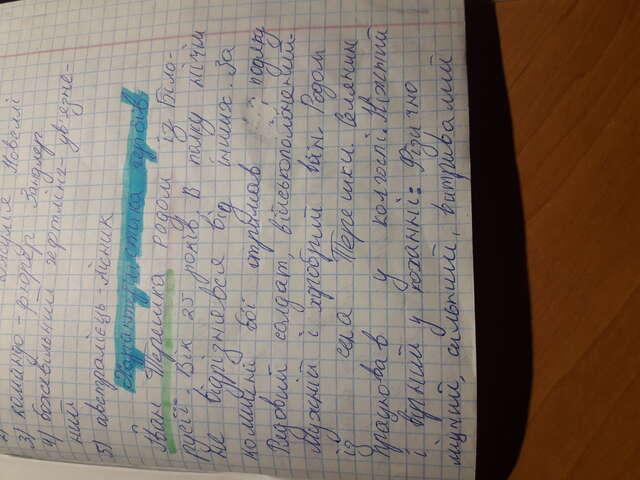 2) Джулія Новеллі
3) командо-фюрер Зандлер
4) божевільний гефтлінг-ув'язне-
ний
5) австралієць-лісник
Характеристика героїв.
Іван Терешка родом із Біло-
русії. Вік 25 років. В полку нічим
не відрізнявся від інших. За
колишні бої отримав подяку
Рядовий солдат, військовополонений.
Мужній і хоробрий воїн. Родом
із села Терешки. Селянин
працював у колгоспі. Ніжний
і вірний у коханні. Фізично
міцний, сильний, витривалий